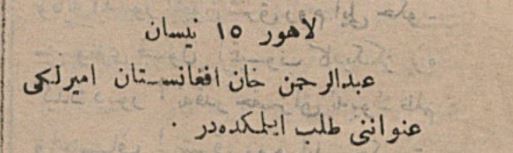 لاهور ١٥ نيسان
عبدالرحمن خان افغانستان اميرلكى
عنواننى طلب ايلمكده‌در .